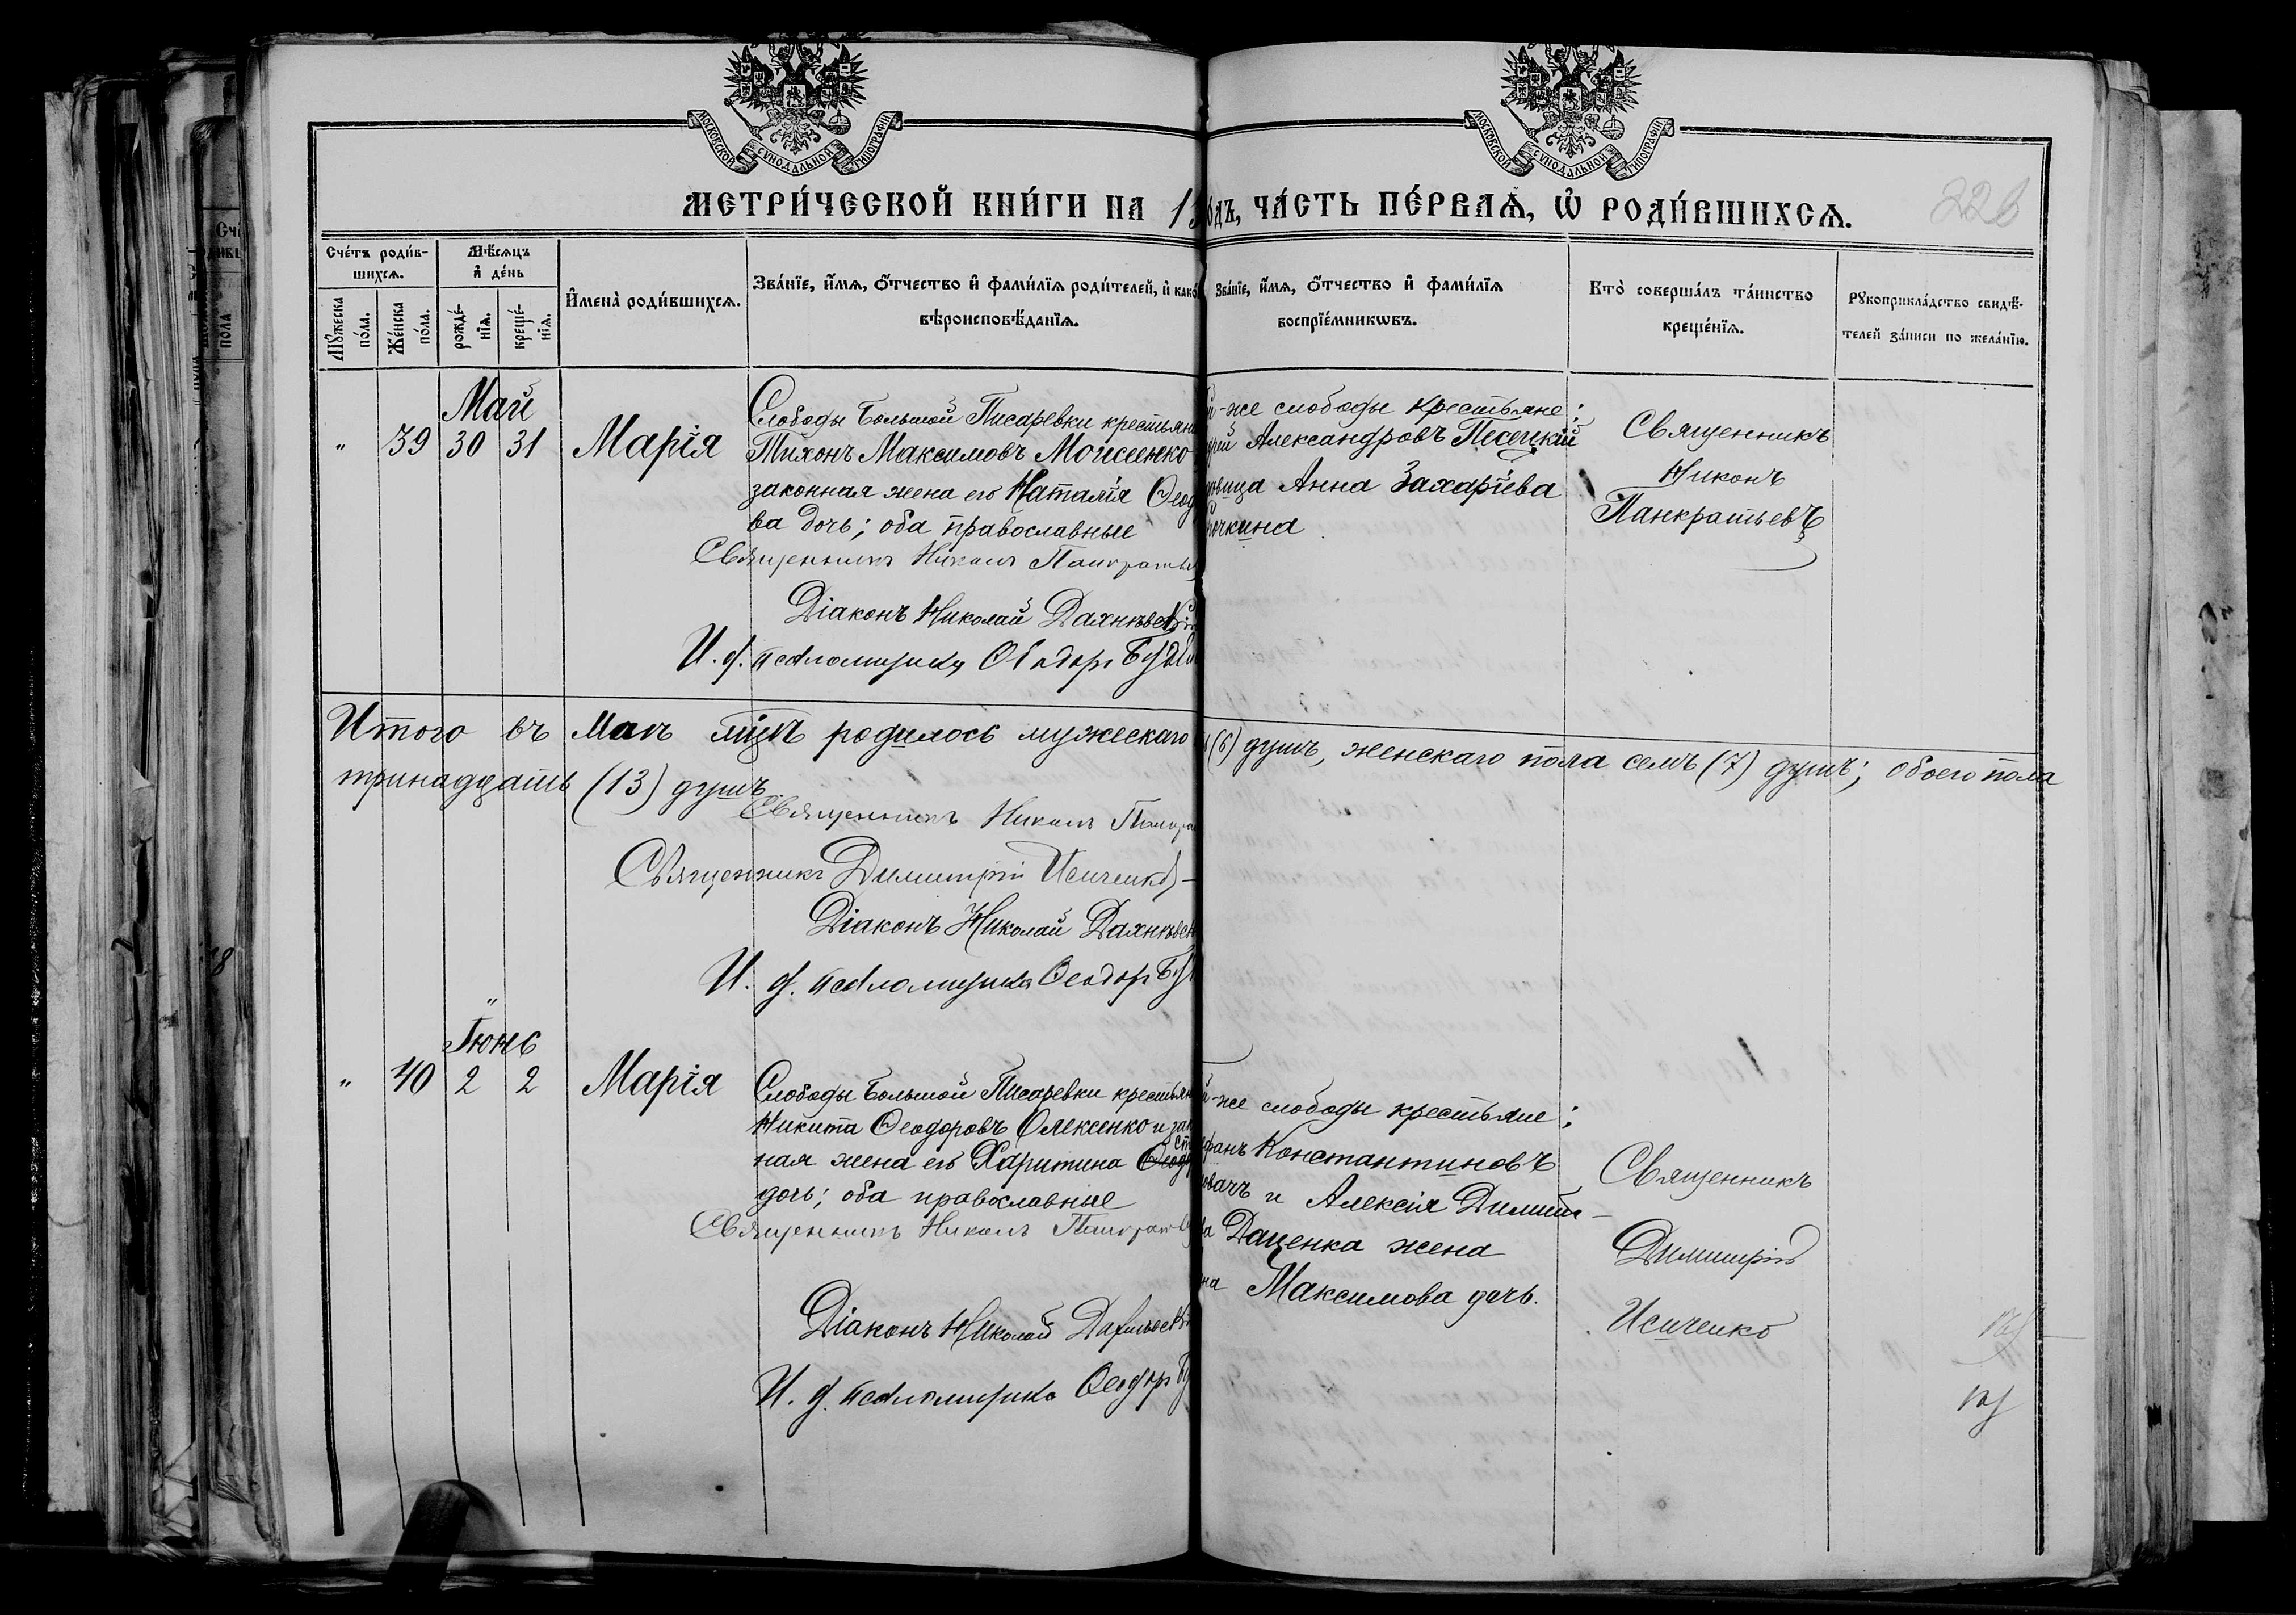 МОСКОВСКОЙ СУНОДАЛЬНОЙ ТИПОГРАФІИ
МОСКОВСКОЙ СУНОДАЛЬНОЙ ТИПОГРАФІИ
МЕТРИ́ЧЕСКОЙ КНИ́ГИ НА 1 ЧА́СТЬ ПЕ́РВАѦ, Ѡ҆ РОДИ́ВШИХСѦ.
226
Сче́тъ роди́в-
шихсѧ.
Мѣ́сѧцъ
и҆ де́нь
Мꙋ́жеска
по́ла.
Же́нска
по́ла.
рожде́-
нїѧ.
креще́-
нїѧ.
И҆мена̀ роди́вшихсѧ.
Зва́нїе, и҆́мѧ, ѻ҆́тчество и҆ фами́лїѧ роди́телей, и҆
вѣроисповѣ́данїѧ.
Зва́нїе, и҆́мѧ, ѻ҆́тчество и҆ фами́лїѧ
воспрїе́мникѡвъ.
Кто̀ соверша́лъ та́инство
креще́нїѧ.
Рꙋкоприкла́дство свидѣ́-
телей за́писи по жела́нїю.
Май
" 39 30 31 Марія
Слободы Большой Писаревки
Тихонъ Максимовъ Моисеенко
законная жена его Наталія
ва дочь; оба православные
Священникъ Никонъ
Діаконъ Николай
И. д. псаломщика Ѳеодоръ
-же слободы крестьяне:
Александровъ Песецкій
Анна Захаріева
Священникъ
Никонъ
Панкратьевъ
Итого въ Маѣ мцѣ родилось мужескаго (6) душъ, женскаго пола семь (7) душъ; обоего пола
тринадцать (13) душъ.
Священникъ Никонъ
Священникъ Димитрій Исиченко
Діаконъ Николай
И. д. псаломщика Ѳеодоръ
"
Іюнь
" 40 2 2 Марія
Слободы Большой Писаревки
Никита Ѳеодоровъ Олексенко и
ная жена его Харитина
дочь; оба православные
Священникъ Никонъ
Діаконъ Николай
И. д. псаломщика Ѳеодоръ
-же слободы крестьяне:
Константиновъ
и Алексія Димит-
Даценка жена
Максимова дочь.
Священникъ
Димитрій
Исиченко